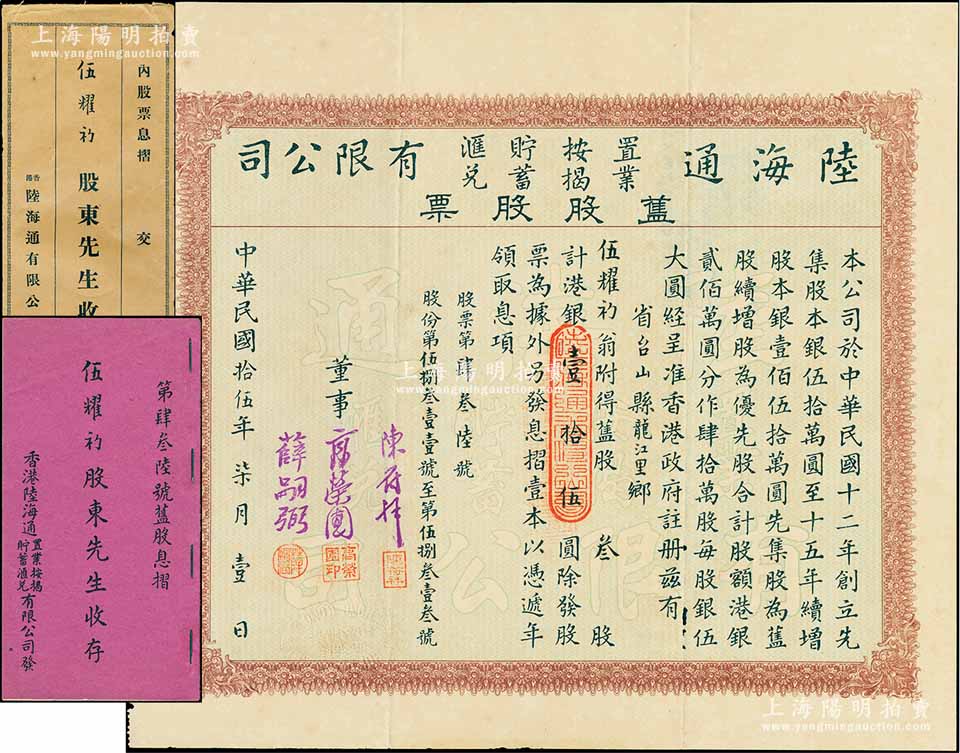 上海陽明拍賣
www.yangmingauction.com
內股票息摺 交
伍耀礿 股東先生收
香港 陸海通有限公
第肆叁陸號舊股息摺
伍耀礿股東先生收存
香港陸海通置業按揭貯蓄滙兌有限公司發
陸海通 置業 按揭 貯蓄 滙兌 有限公司
舊股股票
本公司於中華民國十二年創立先
集股本銀伍拾萬圓至十五年續增
股本銀壹佰伍拾萬圓先集股為舊
股續增股為優先股合計股額港銀
貳佰萬圓分作肆拾萬股每股銀伍
大圓經呈准香港政府註册兹有
省台山縣龍江里鄉
伍耀礿翁附得舊股 叁 股
計港銀壹拾伍圓除發股
票為據外另發息摺壹本以憑遞年
領取息項
股票第肆叁陸號
股份第伍捌叁壹壹號至第伍捌叁壹叁號
董事
高榮園
薛嗣弼
高榮園印
中華民國拾伍年柒月壹日
上海陽明拍賣
www.yangmingauction.com
上海陽明拍賣
www.yangmingauction.com